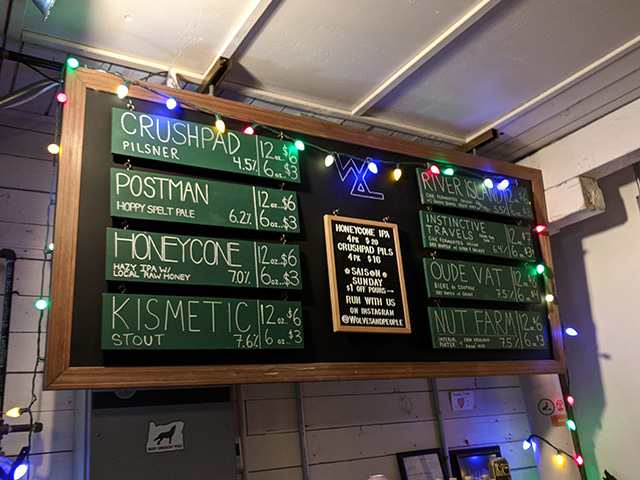 CRUSHPAD
PILSNER 4.5%
12 oz. $6
6 oz. $3
POSTMAN
HOPPY SPELT PALE 6.2%
12 oz. $6
6 oz. $3
HONEYCONE
HAZY IPA W/
LOCAL RAW HONEY 7.0%
12 oz. $6
6 oz. $3
KISMETIC
STOUT 7.6%
12 oz. $6
6 oz. $3
HONEYCONE IPA
4PK $20
CRUSHPAD PILS
4PK $16
SAISON
SUNDAY
$1 OFF POURS
RUN WITH US
ON INSTAGRAM
@WOLVESANDPEOPLE
RIVER ISLAND
5.5%
INSTINCTIVE
TRAVELS
6.4%
OUDE VAT
BIERE de COUPAGE
7.5%
NUT FARM
IMPERIAL
PORTER
7.5%
KEEP OREGON WILD